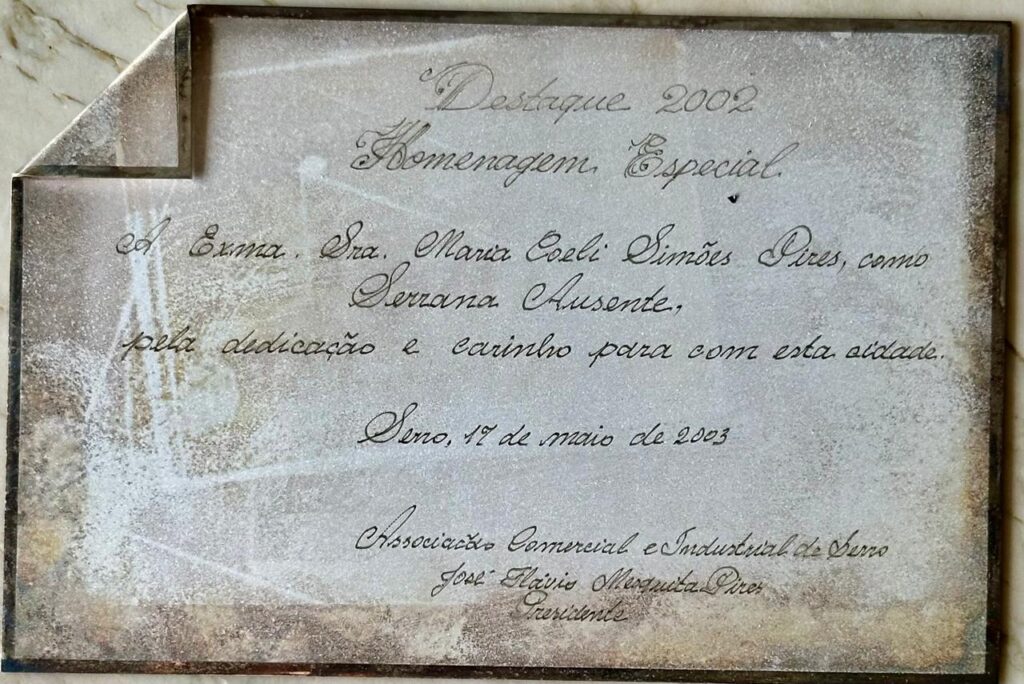 Destaque 2002
Homenagem Especial
A Exma. Sra. Maria Coeli Simões Pires, como
Serrana Ausente,
pela dedicação e carinho para com esta cidade.
Serro, 17 de maio de 2003
Associação Comercial e Industrial de Serro
José Flávio Mesquita Pires
Presidente